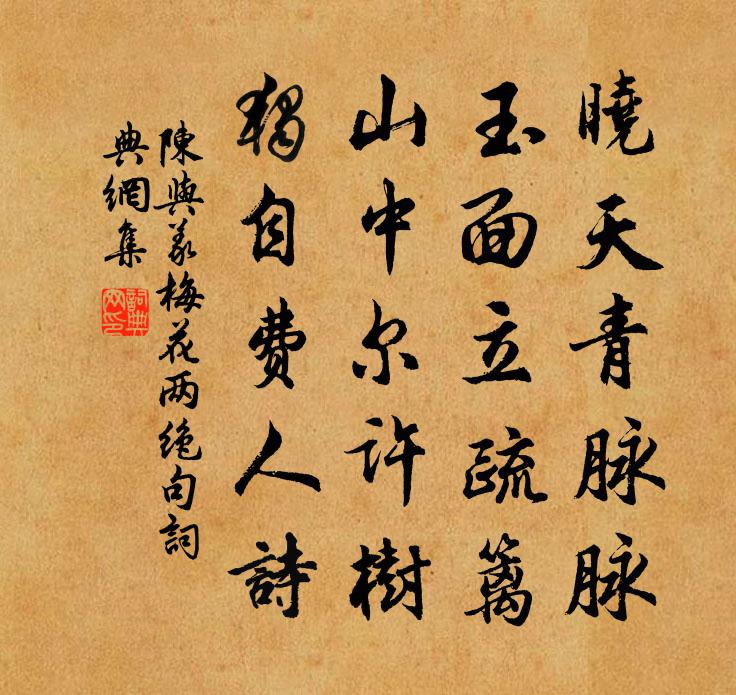 曉天青脉脉
玉面立疏篱
山中尔許樹
獨自費人詩
陳與義梅花两绝句詞
典網集
詞典
网印